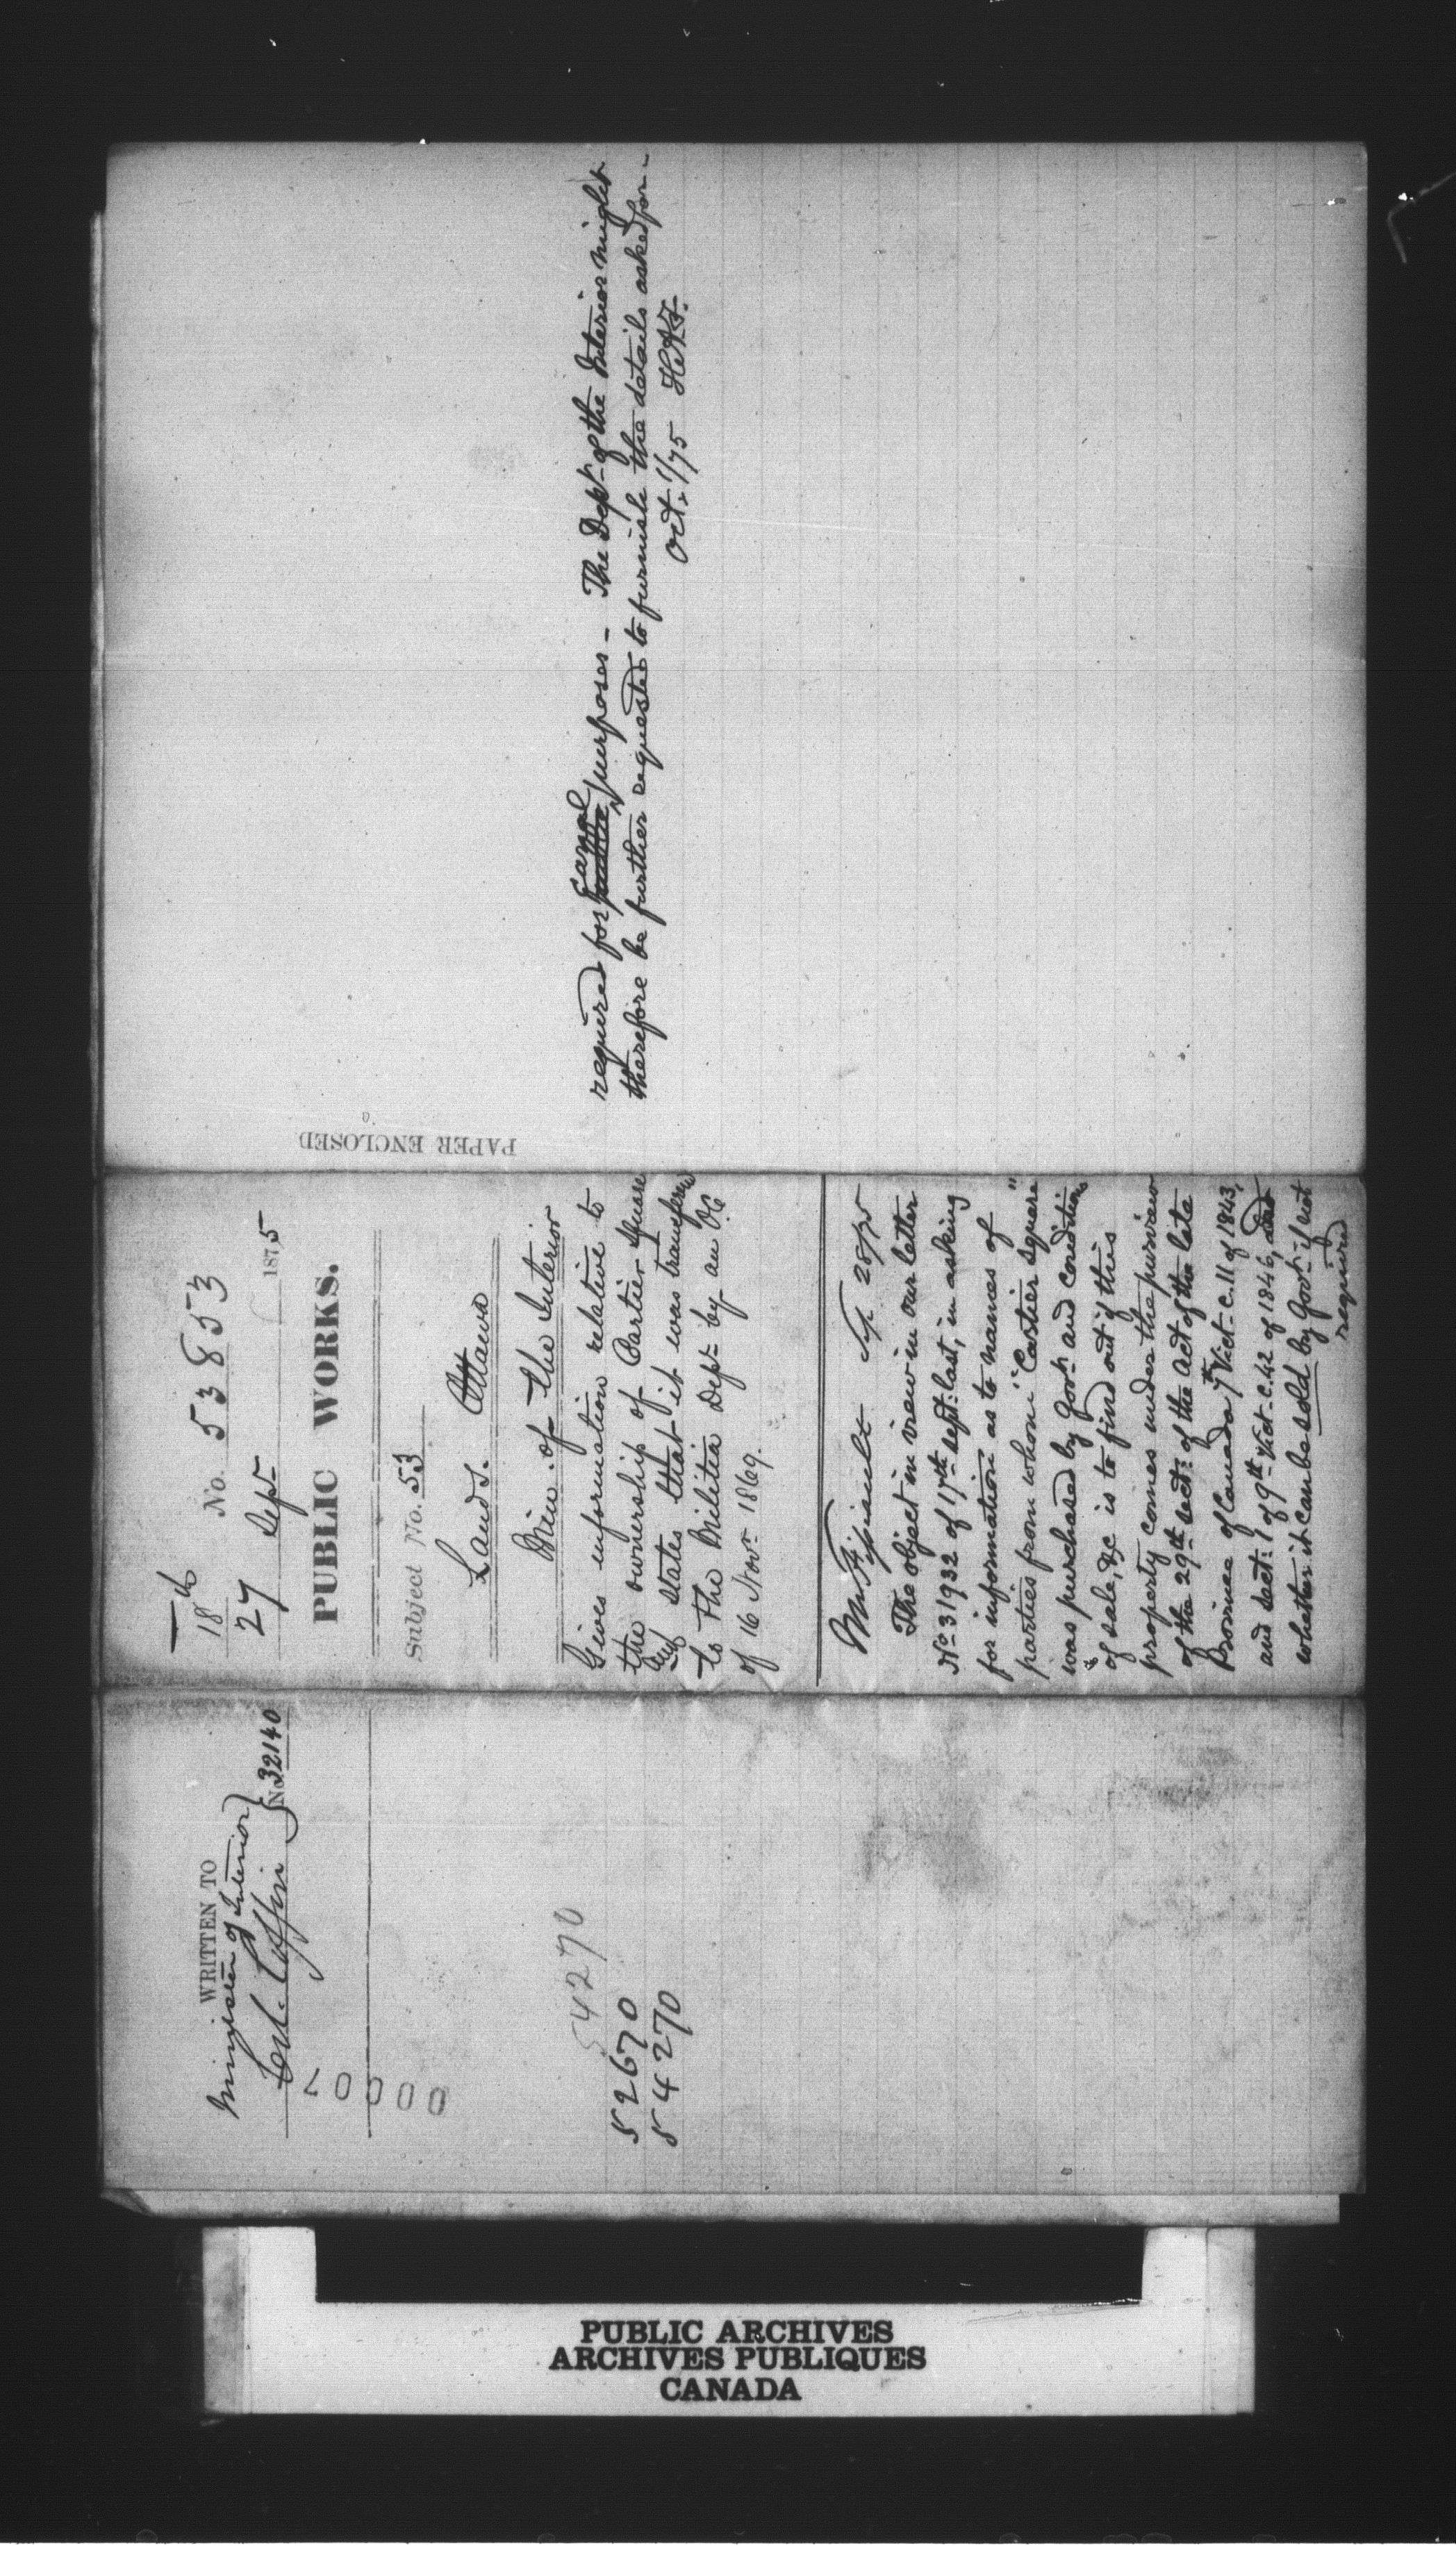 WRITTEN TO
Minister of Interior
Col. Coffin } No. 32140
00007
54270
52670
54270
18
No. 53853
27 Sept 1875
PUBLIC WORKS.
Subject No. 53
Lands. Ottawa
Min. of the Interior
Gives information relative to
the ownership of Cartier Square
and states that it was transferred
to the Militia Dept. by an O.C.
of 16 Novr. 1869.
Mr. Fissiault Sep 28/75
The object in view in our letter
No. 31932 of 17th Sept: last, in asking
for information as to names of
parties from whom "Cartier Square"
was purchased by Govt. and conditions
of sale, &c is to find out if this
property comes under the purview
of the 29th Sect: of the Act of the late
Province of Canada 7th Vict. C. 11 of 1843,
and Sect: 1 of 9th Vict. C. 42 of 1846, and
whether it can be sold by Govt. if not
required
PAPER ENCLOSED
required for public canal purposes - The Dept. of the Interior might
therefore be further requested to furnish the details asked for -
Oct. 1/75
PUBLIC ARCHIVES
ARCHIVES PUBLIQUES
CANADA